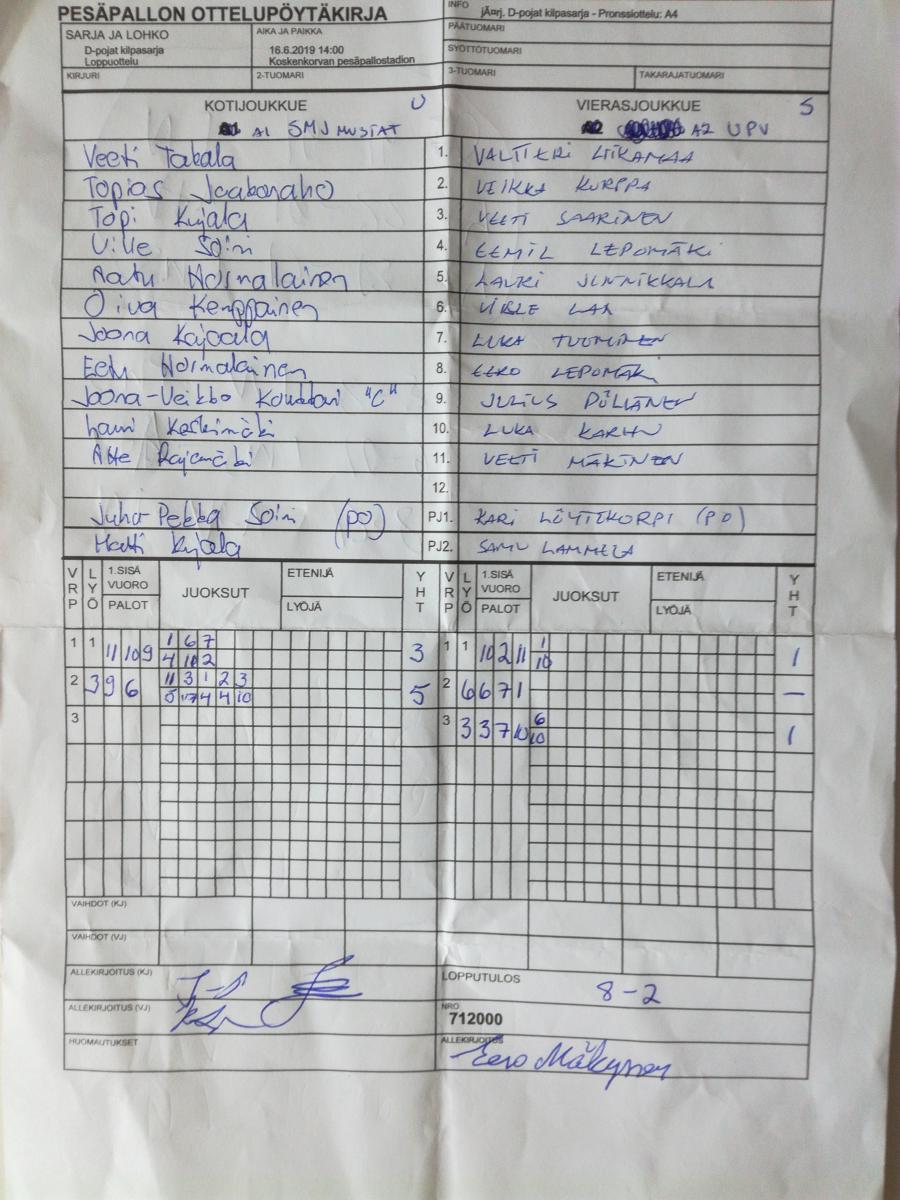 PESÄPALLON OTTELUPÖYTÄKIRJA
INFO jÄ¤rj. D-pojat kilpasarja - Pronssiottelu: A4
SARJA JA LOHKO
D-pojat kilpasarja
Loppuottelu
AIKA JA PAIKKA
16.6.2019 14:00
Koskenkorvan pesäpallostadion
PÄÄTUOMARI
SYÖTTÖTUOMARI
KIRJURI 2-TUOMARI 3-TUOMARI TAKARAJATUOMARI
KOTIJOUKKUE U VIERASJOUKKUE S
A1 SMJ MUSTAT A2 UPV
Veeti Takala 1.
Topias 2. VEIKKA KORPPA
Topi Kujala 3. VEETI SAARINEN
Ville Soini 4. EEMIL LEPOMÄKI
Aatu Normalainen 5. LAURI
Oiva Kemppainen 6.
Joona 7. LUKA TUOMINEN
Eetu Normalainen 8. EEKO LEPOMÄKI
Joona-Veikko "C" 9. JULIUS PÖLLÄNEN
Lauri Keskimäki 10. LUKA KARHU
Atte Rajamäki 11. VEETI MÄKINEN
12.
Juha-Pekka Soini (PO) PJ1. KARI LÖYTTIKORPI (PO)
Matti Kujala PJ2. SAMU LAMMELA
VRP LYÖ 1.SISÄ VUORO PALOT JUOKSUT ETENIJÄ LYÖJÄ YHT VRP LYÖ 1.SISÄ VUORO PALOT JUOKSUT ETENIJÄ LYÖJÄ YHT
1 1 11 10 9 1 6 7 3 1 1 10 2 11 1 1
4 10 2 10
2 3 9 6 11 3 1 2 3 5 2 6 6 7 1 —
5 4 4 10
3 3 3 3 7 10 6 1
10
VAIHDOT (KJ)
VAIHDOT (VJ)
ALLEKIRJOITUS (KJ) LOPPUTULOS 8-2
ALLEKIRJOITUS (VJ) NRO
712000
HUOMAUTUKSET ALLEKIRJOITUS Eero Mäkynen